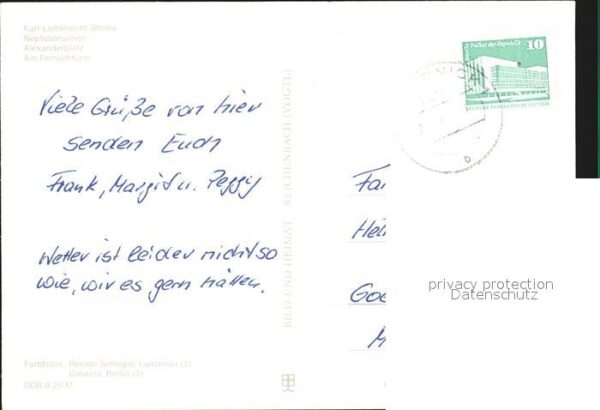 Karl-Liebknecht-Straße
Neptunbrunnen
Alexanderplatz
Am Fernsehturm
Viele Grüße von hier
senden Euch
Frank, Margit u. Peggy
Wetter ist leider nicht so
wie, wir es gern hätten.
Farbfotos: Renate Schlegel, (2)
Colazza, Berlin (2)
DDR 0,20 M
BILD UND HEIMAT REICHENBACH (VOGTL)
Palast der Republik 10
Fa
Hei
Goe
M
privacy protection
Datenschutz